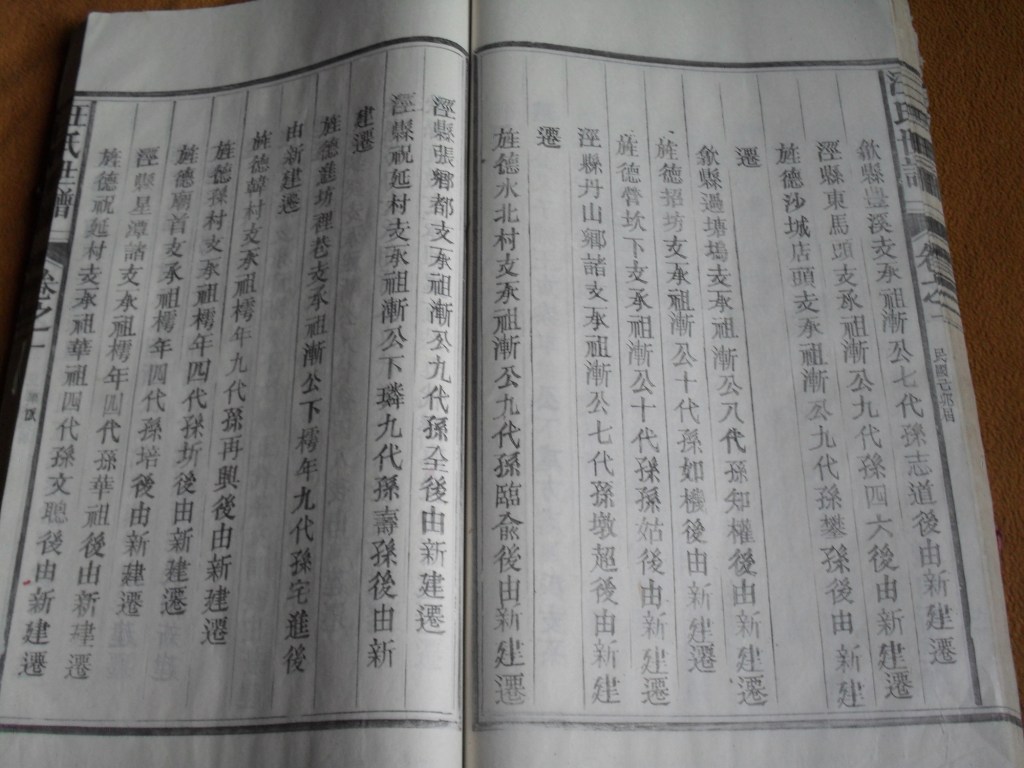 歙縣豐溪支承祖漸公七代孫志道後由新建遷
涇縣東馬頭支承祖漸公九代孫四六後由新建遷
旌德沙城店頭支承祖漸公九代孫攀孫後由新建
遷
歙縣過塘塢支承祖漸公八代孫知權後由新建遷
旌德招坊支承祖漸公十代孫如機後由新建遷
旌德營坎下支承祖漸公十代孫孫姑後由新建遷
涇縣丹山鄉諸支承祖漸公七代孫墩超後由新建
遷
旌德水北村支承祖漸公九代孫臨俞後由新建遷
涇縣張鄉都支承祖漸公九代孫全後由新建遷
涇縣祝延村支承祖漸公下璘九代孫壽孫後由新
建遷
旌德進坊裡巷支承祖漸公下樗年九代孫宅進後
由新建遷
旌德 村支承祖樗年九代孫再興後由新建遷
旌德孫村支承祖樗年四代孫圻後由新建遷
旌德廟首支承祖樗年四代孫培後由新建遷
涇縣星潭諸支承祖樗年四代孫華祖後由新建遷
旌德祝延村支承祖華祖四代孫文聰後由新建遷
汪氏世譜
卷之一